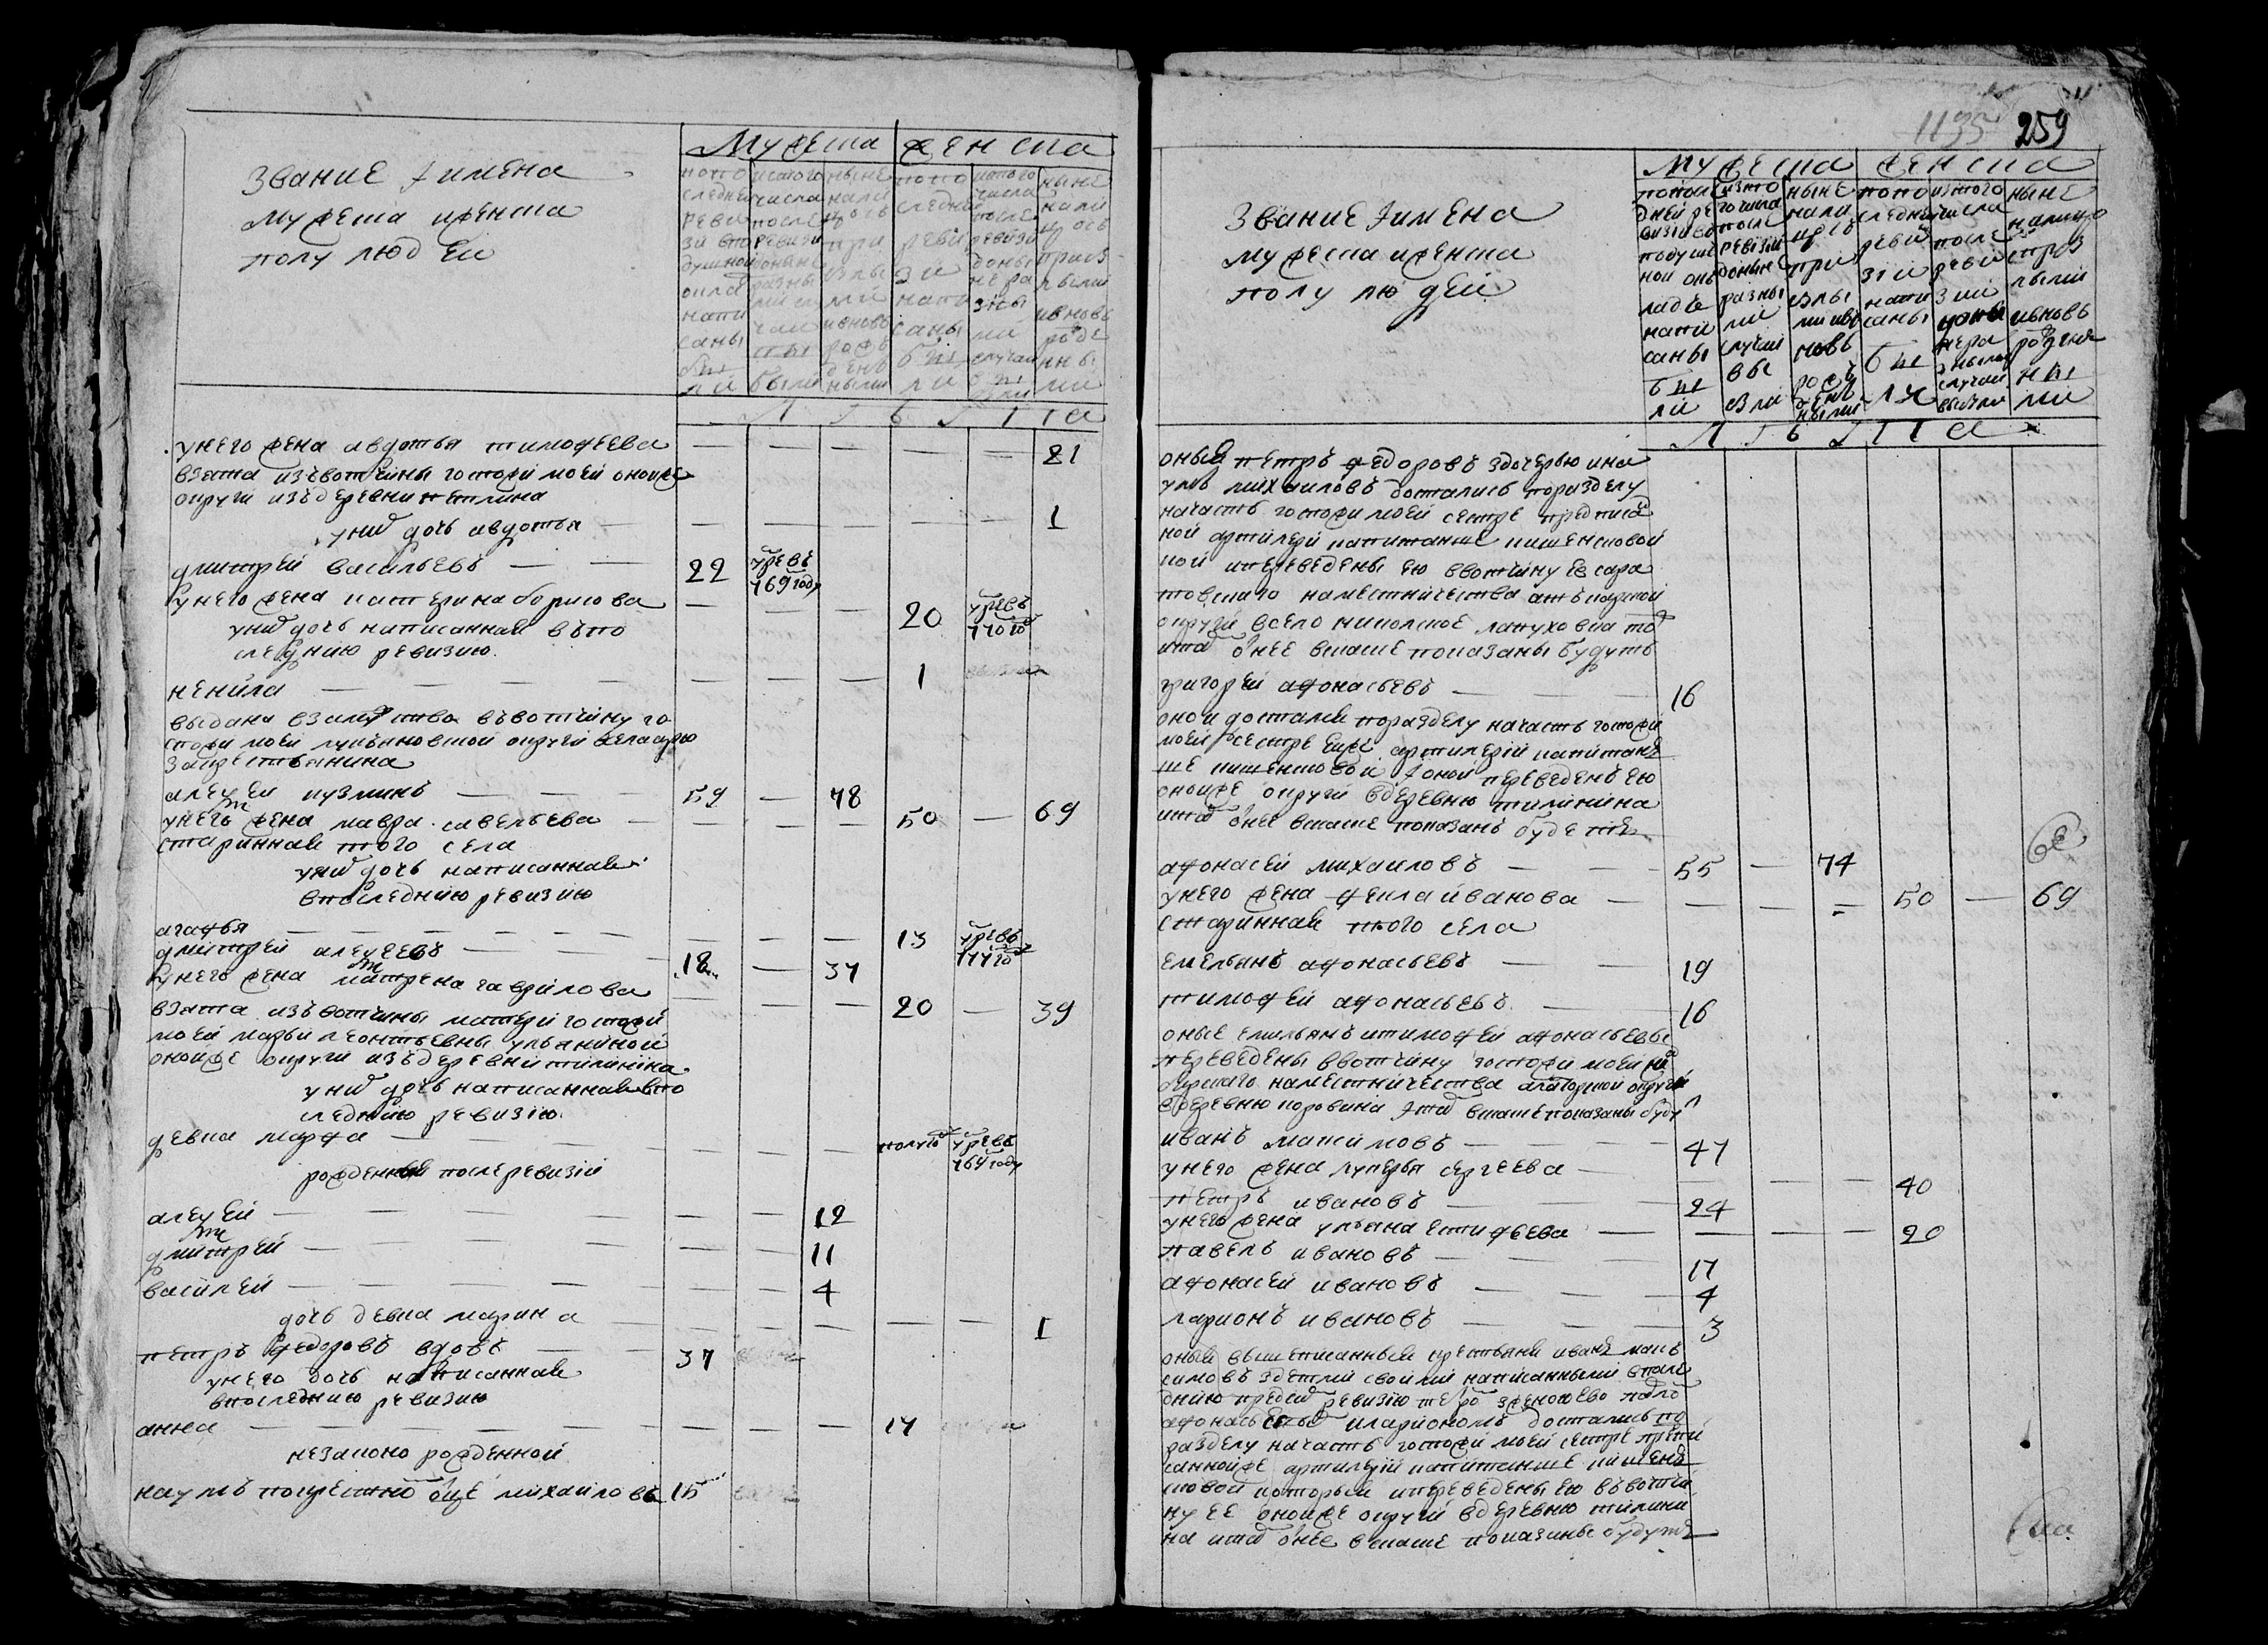 Звание и имена
мужеска и женска
полу людей
Мужеска
женска
попо
следней
реви
зи впо
душной
окла
напи
саны
бы
ли
истого
числа
после
ревизи
доныне
разны
ми слу
чаи
вы
были
ныне
нали
цо съ
при
былы
ми
ивново
рожъ
денъ
ными
попо
следней
реви
зи
напи
саны
бы
ли
истого
числа
после
ревизи
доны
не ра
зны
ми
случаи
вы
были
ныне
нали
цо съ
приб
лыми
ивновь
рожде
нны
ми
Л Ѣ Т А
унего жена авдотья тимофеева — — — — — 21
взята изъ вотчины госпожи моей оной же
округи изъ деревни тетлина
уних дочь авдотья — — — — — 1
дмитрей васильевъ — — 22 умревъ 769 году
унего жена катерина борисова — — — 20 умревъ 770 го
уних дочь написанная въпо
следнию ревизию
ненила — — — — — — 1
выдана взамужство въвотчину го
спожи моей лукояновской округи
закрестьянина
алексей кузминъ — — — 59 — 78
унего жена мавра савельева — — — — 50 — 69
стариннай того села
уних дочь написанная
впоследнию ревизию
агафья — — — — — — — — 13 умревъ 777 го
дмитрей алексеевъ — — — 18 — 37
унего жена матрена гаврилова — — — 20 — 39
взята изъ вотчины матери госпожи
моей марьи леонтьевны ульяниной
оной же округи изъ деревни тилинина
уних дочь написанная впо
следнию ревизию
девка марфа — — — — — — полуго умревъ 764 году
рожденныя после ревизии
алексей — — — — — — 12
дмитрей — — — — — — 11
василей — — — — — — 4
дочь девка марина — — — — — — 1
петръ федоровъ вдовъ — — 37
унего дочь написанная
впоследнию ревизию
анна — — — — — — — — 14
незаконо рожденной
наумъ покрестно отце михаиловъ 15
1135 259
Звание и имена
мужеска и женска
полу людей
Мужеска
женска
попосле
дней ре
визи во
подуше
ной ок
ладе
напи
саны
бы
ли
изто
го числа
после
ревизии
доныне
разны
ми
случаи
вы
были
ныне
нали
цо съ
при
былы
ми ив
новь
рож
ден
ными
попо
следней
реви
зии
напи
саны
бы
ли
изтого
числа
после
реви
зии
доны
не ра
зными
случаи
выбыли
ныне
налицо
съ при
былыми
ивновь
рожден
ны
ми
Л Ѣ Т А
оный петръ федоровъ здочерью ина
умъ михаиловъ достались поразделу
начасть госпожи моей сестре предписа
ной артилерии капитанше пишенсковой
кои и переведены ею ввотчину ее сара
товского наместничества аткарской
округи всело никольское лапуховка то
и там онее вскаске показаны будуть
григорей афонасьевъ — — — 16
оной достался поразделу начасть госпожи
моей сестре ее же артилерии капитан
ше пишенсковой и оной переведенъ ею
оной же округи вдеревню тилинина
и там онее вскаске показанъ будетъ
афонасей михаиловъ — — — 55 — 74
унего жена фекла иванова — — — — — 50 — 69
стариннай того села
емельянъ афонасьевъ — — 19
тимофей афонасьевъ — — 16
оные емильянъ итимофей афонасьевы
переведены ввотчину госпожи моей си
бирскаго наместничества алаторской округи
вдеревню коровина и там вскаске показаны буду
иванъ максимовъ — — — 47
унего жена лукерья сергеева — — — — 40
петръ ивановъ — — — 24
унего жена ульяна естифеева — — — — 20
павелъ ивановъ — — — 17
афонасей ивановъ — — — 4
ларионъ ивановъ — — — 3
оный вышеписанный крестьяни иванъ мак
симовъ здетми своими написанными впосле
днию пред сим ревизию петромъ зженою ево павлом
афонасьемъ илариономъ достались по
разделу начасть госпожи моей сестре препи
санной же артилерии капитанше пишен
сковой которыя и переведены ею въвотчи
ну ее оной же округи вдеревню тилини
на итам онее вскаске показаны будутъ